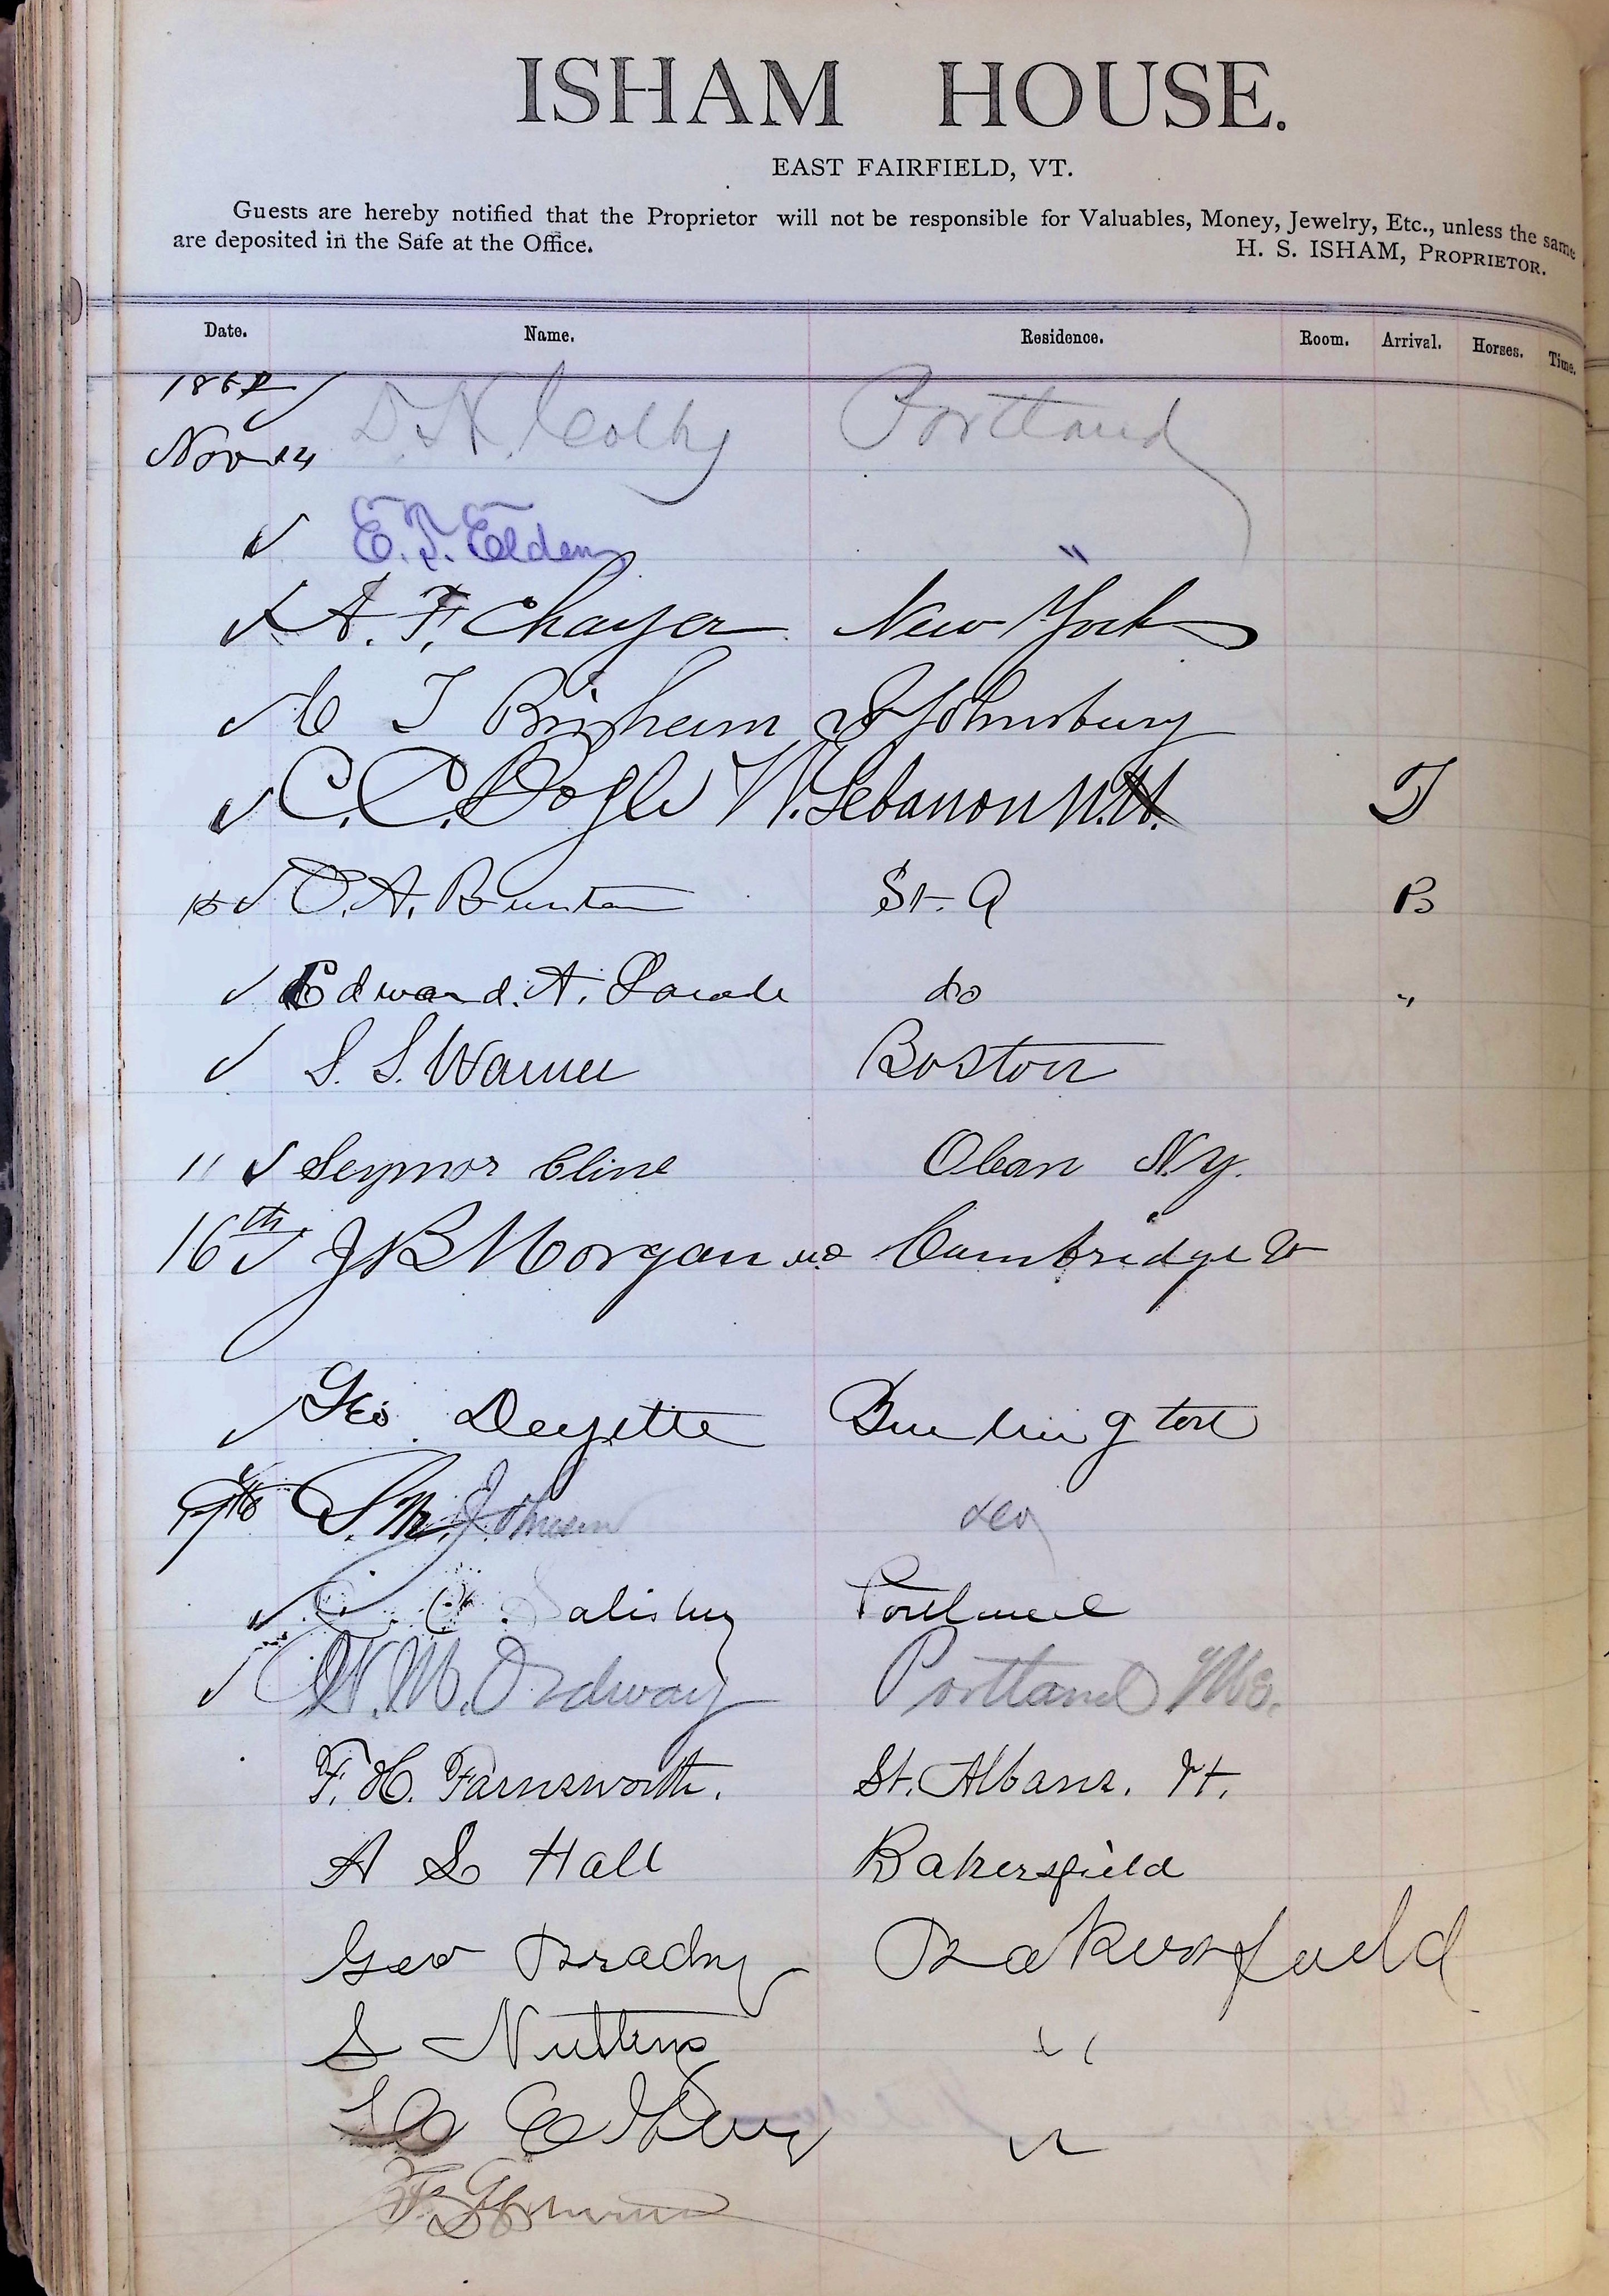 ISHAM HOUSE.
EAST FAIRFIELD, VT.
Guests are hereby notified that the Proprietor will not be responsible for Valuables, Money, Jewelry, Etc., unless the same
are deposited in the Safe at the Office.
H. S. ISHAM, PROPRIETOR.
Date. Name. Residence. Room. Arrival. Horses. Time.
Nov 14 D. H. Colby Portland
✓ E. T. Elden "
✓ A. F. Chayer New York
✓ C T Brigham St Johnsbury
✓ C. C. Bogle W. Lebanon N.H. T
15 ✓ O. A. Burton St. A B
✓ Edward. A. do "
✓ S. S. Warner Boston
" ✓ Seymor Cline Olean N.Y.
16th ✓ J B Morgan MD Cambridge Vt
✓ Geo. Deyette Burlington
S. M. Johnson do
✓ C. C. Salisbury Portland
✓ W. M. Ordway Portland Me.
F. H. Farnsworth. St. Albans. Vt.
A S Hall Bakersfield
Geo Brady Bakersfield
S Nutting "
"